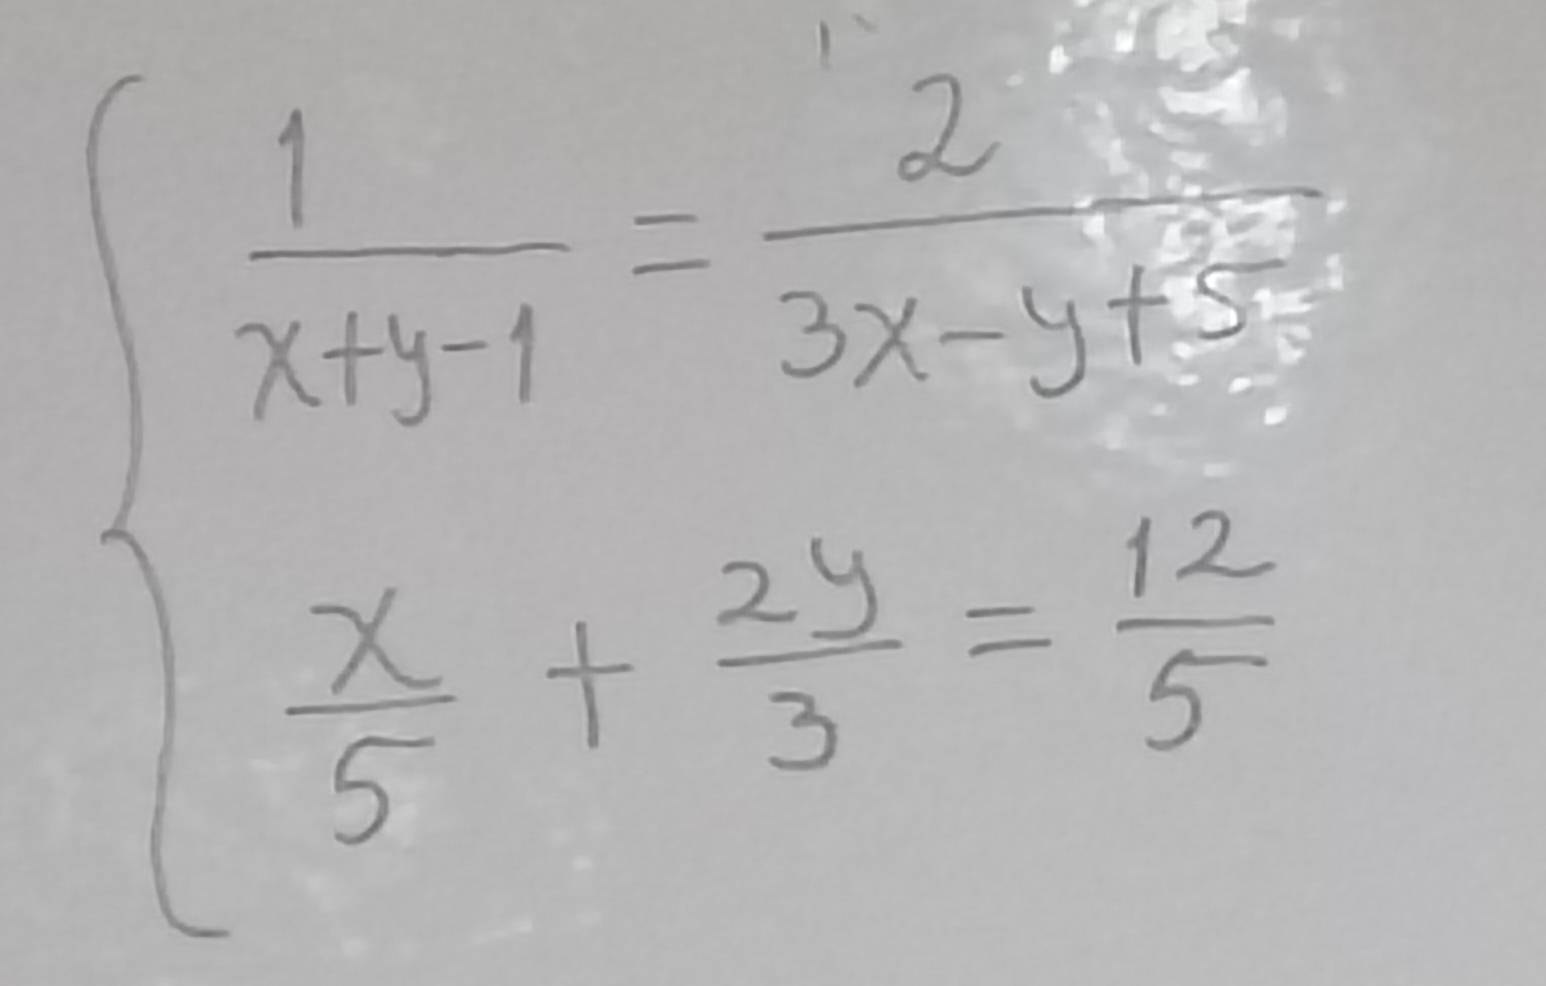 1/(x+y-1) = 2/(3x-y+5)
x/5 + 2y/3 = 12/5